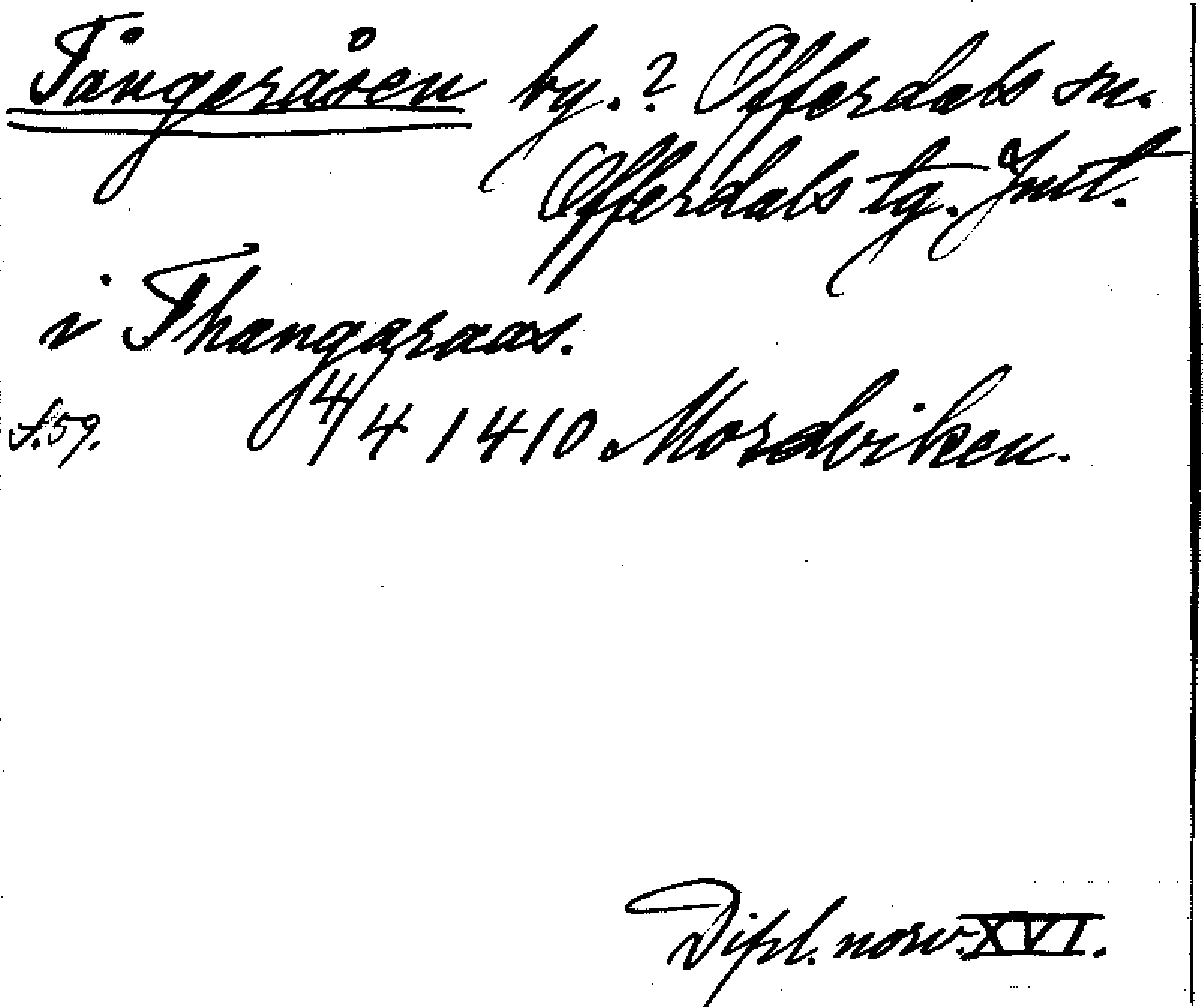 Tångeråsen by.? Offerdals sn.
Offerdals tg. Jmt.
i Thangaraas.
s.59. 4/4 1410 Mordviken.
Dipl. norv. XVI.